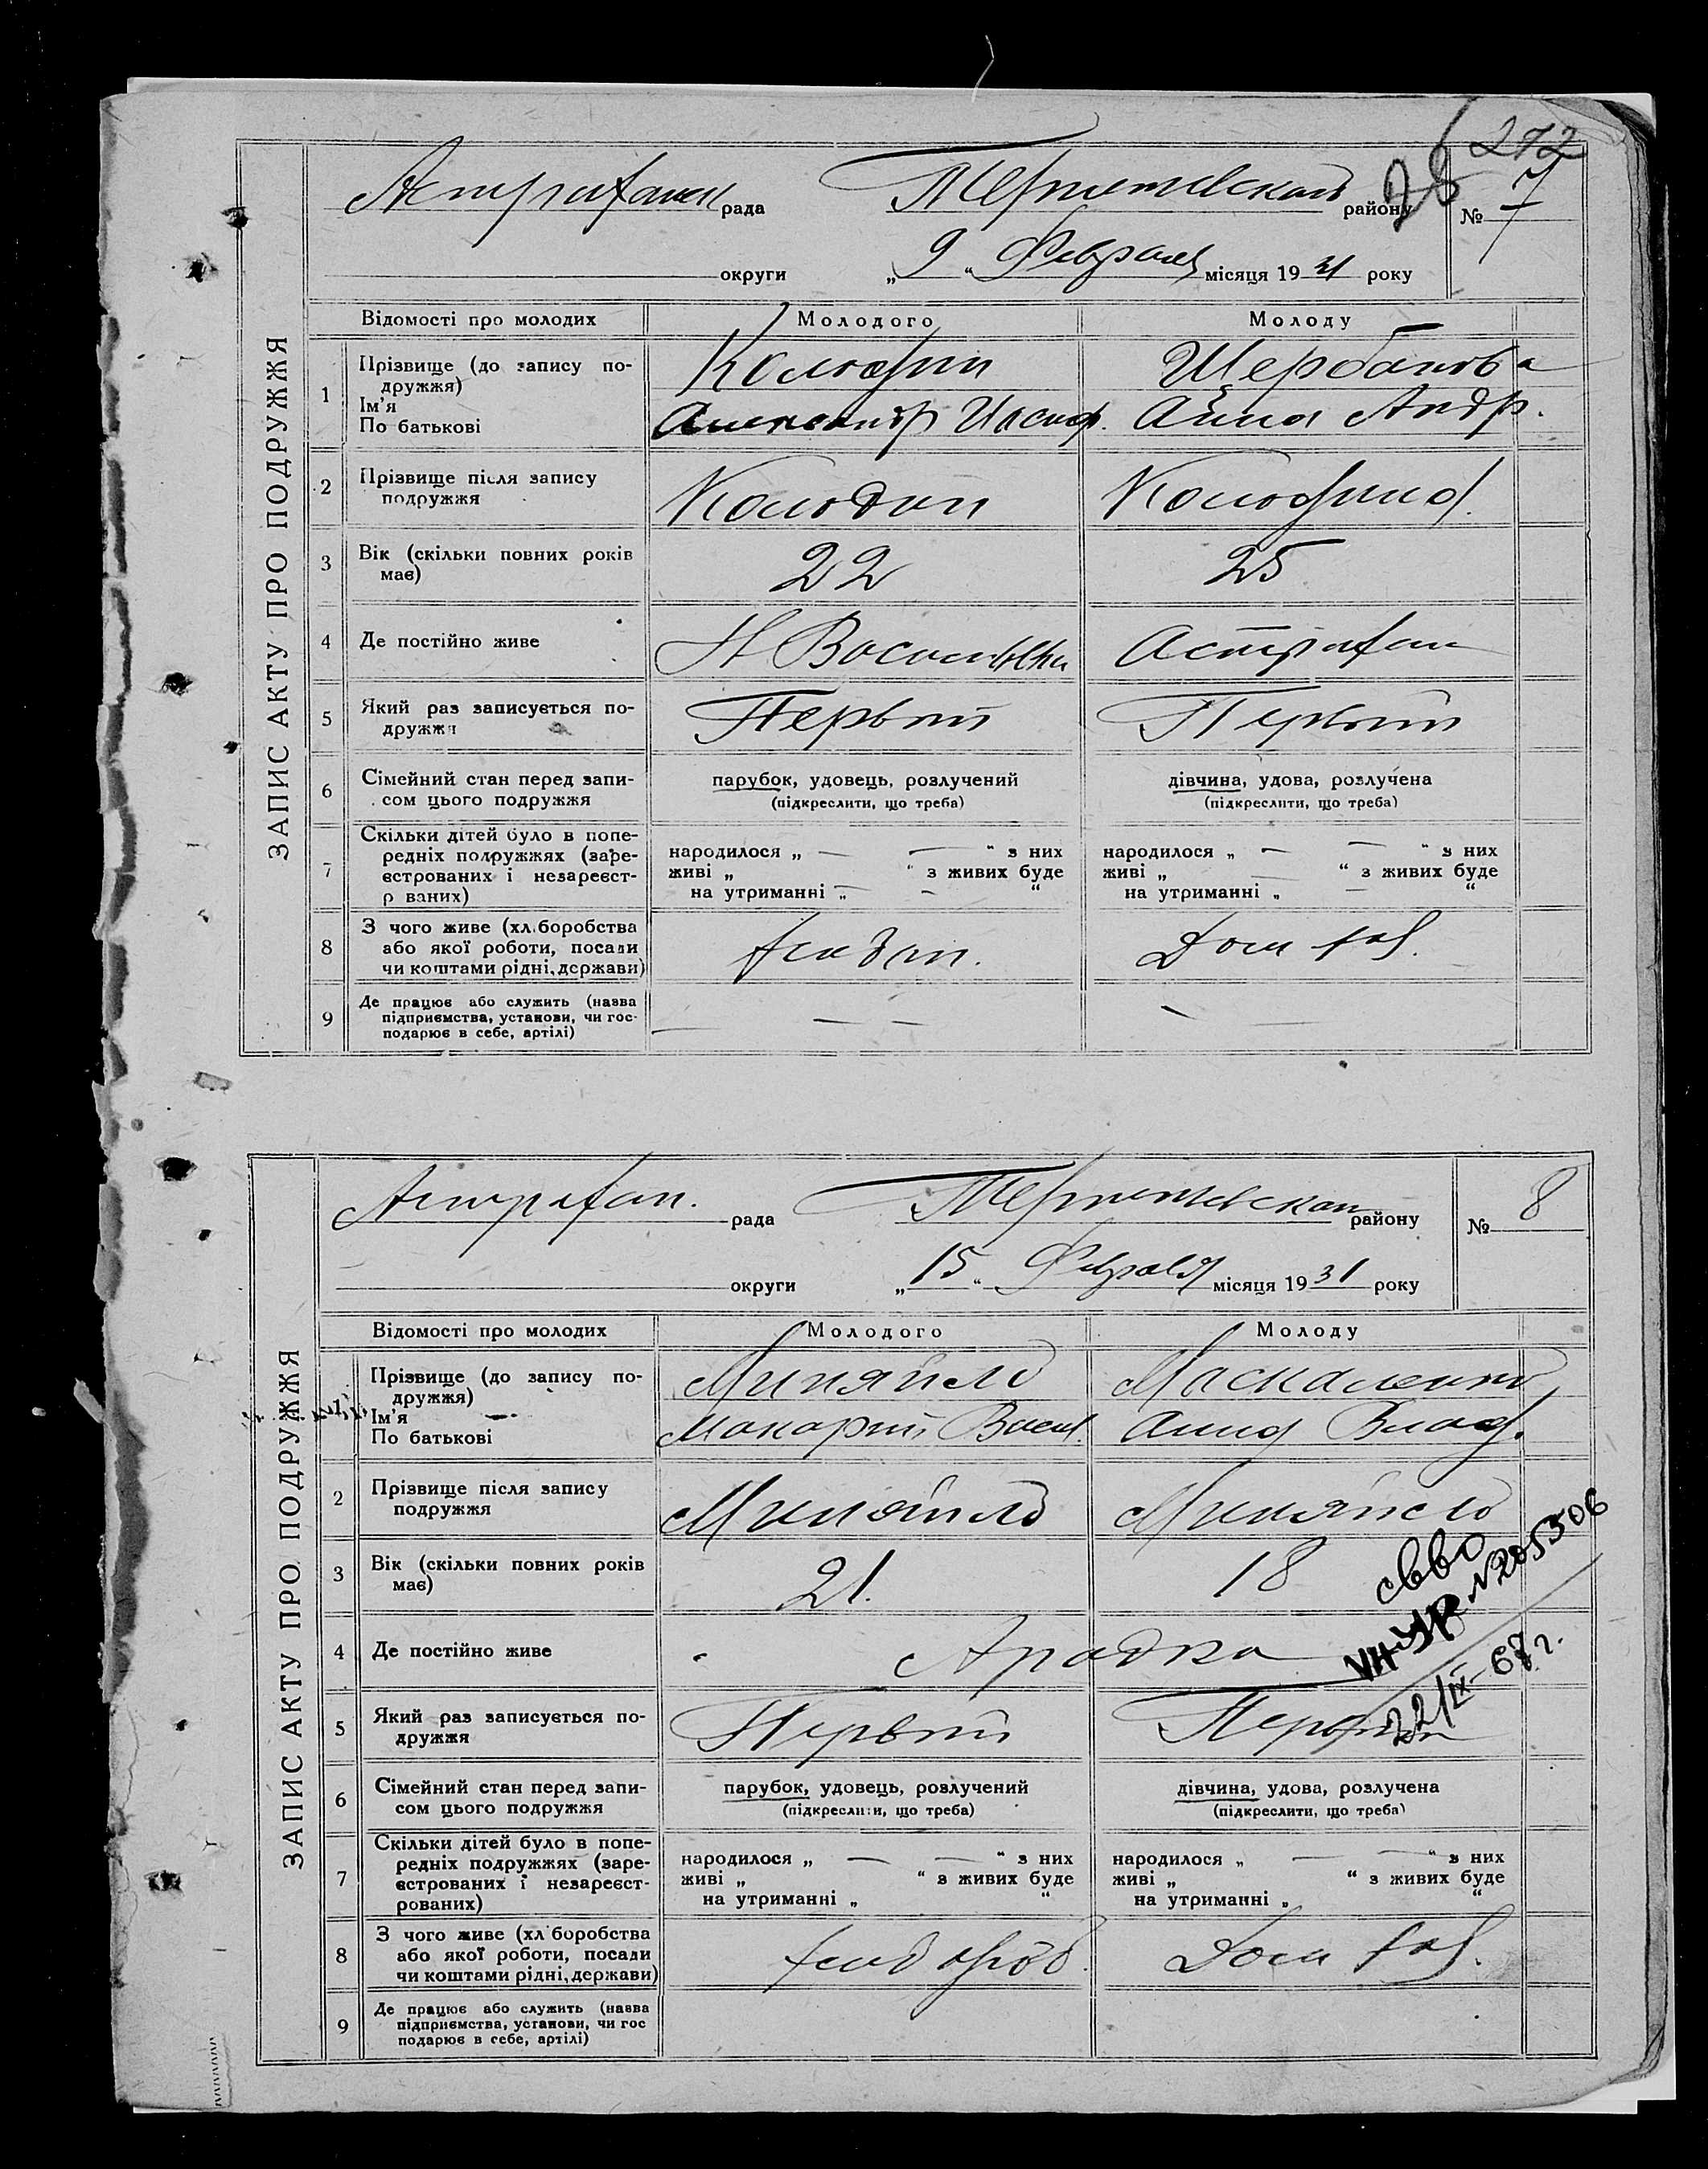 272
28
ЗАПИС АКТУ ПРО ПОДРУЖЖЯ
рада района № 7
округи „9“ Февраля місяця 1931 року
Відомості про молодих Молодого Молоду
1 Прізвище (до запису по-
дружжя)
Ім'я
По батькові
Щербакова
Александр Иосиф. Анна Андр.
2 Прізвище після запису
подружжя
3 Вік (скільки повних років
має)
22 25
4 Де постійно живе
Н Васильевка Астрахан
5 Який раз записується по-
дружжя
Первый Первый
6 Сімейний стан перед запи-
сом цього подружжя
парубок, удовець, розлучений дівчина, удова, розлучена
(підкреслити, що треба) (підкреслити, що треба)
7 Скільки дітей було в попе-
редніх подружжях (заре-
єстрованих і незареєст-
р ваних)
народилося „ — — “ з них народилося „ — — “ з них
живі „ “ з живих буде живі „ “ з живих буде
на утриманні „ — “ на утриманні „ — “
8 З чого живе (хл.боробства
або якої роботи, посади
чи коштами рідні, держави)
Дом хоз.
9 Де працює або служить (назва
підприємства, установи, чи гос-
подарює в себе, артілі)
— — — — —
ЗАПИС АКТУ ПРО ПОДРУЖЖЯ
Астрахан. рада району № 8
округи „15“ Февраля місяця 1931 року
Відомості про молодих Молодого Молоду
Прізвище (до запису по-
дружжя)
Ім'я
По батькові
Миняйло Маскаленко
Макарий Васил. Анна Влад.
2 Прізвище після запису
подружжя
Миняйло Миняйло
3 Вік (скільки повних років
має)
21. 18
4 Де постійно живе
5 Який раз записується по-
дружжя
Первый Первый
св-во
№205306
22/IX-67 г.
6 Сімейний стан перед запи-
сом цього подружжя
парубок, удовець, розлучений дівчина, удова, розлучена
(підкреслити, що треба) (підкреслити, що треба)
7 Скільки дітей було в попе-
редніх подружжях (заре-
єстрованих і незареєст-
рованих)
народилося „ — — “ з них народилося „ — — “ з них
живі „ “ з живих буде живі „ “ з живих буде
на утриманні „ “ на утриманні „ “
8 З чого живе (хл боробства
або якої роботи, посади
чи коштами рідні, держави)
Дом хоз.
9 Де працює або служить (назва
підприємства, установи, чи гос
подарює в себе, артілі)